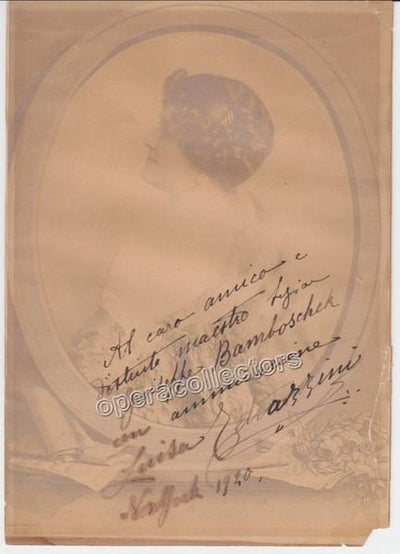 Al caro amico e
distinto maestro Sigor
Giuseppe Bamboschek
operacollectors
con ammirazione
Luisa Tetrazzini
New York 1920.